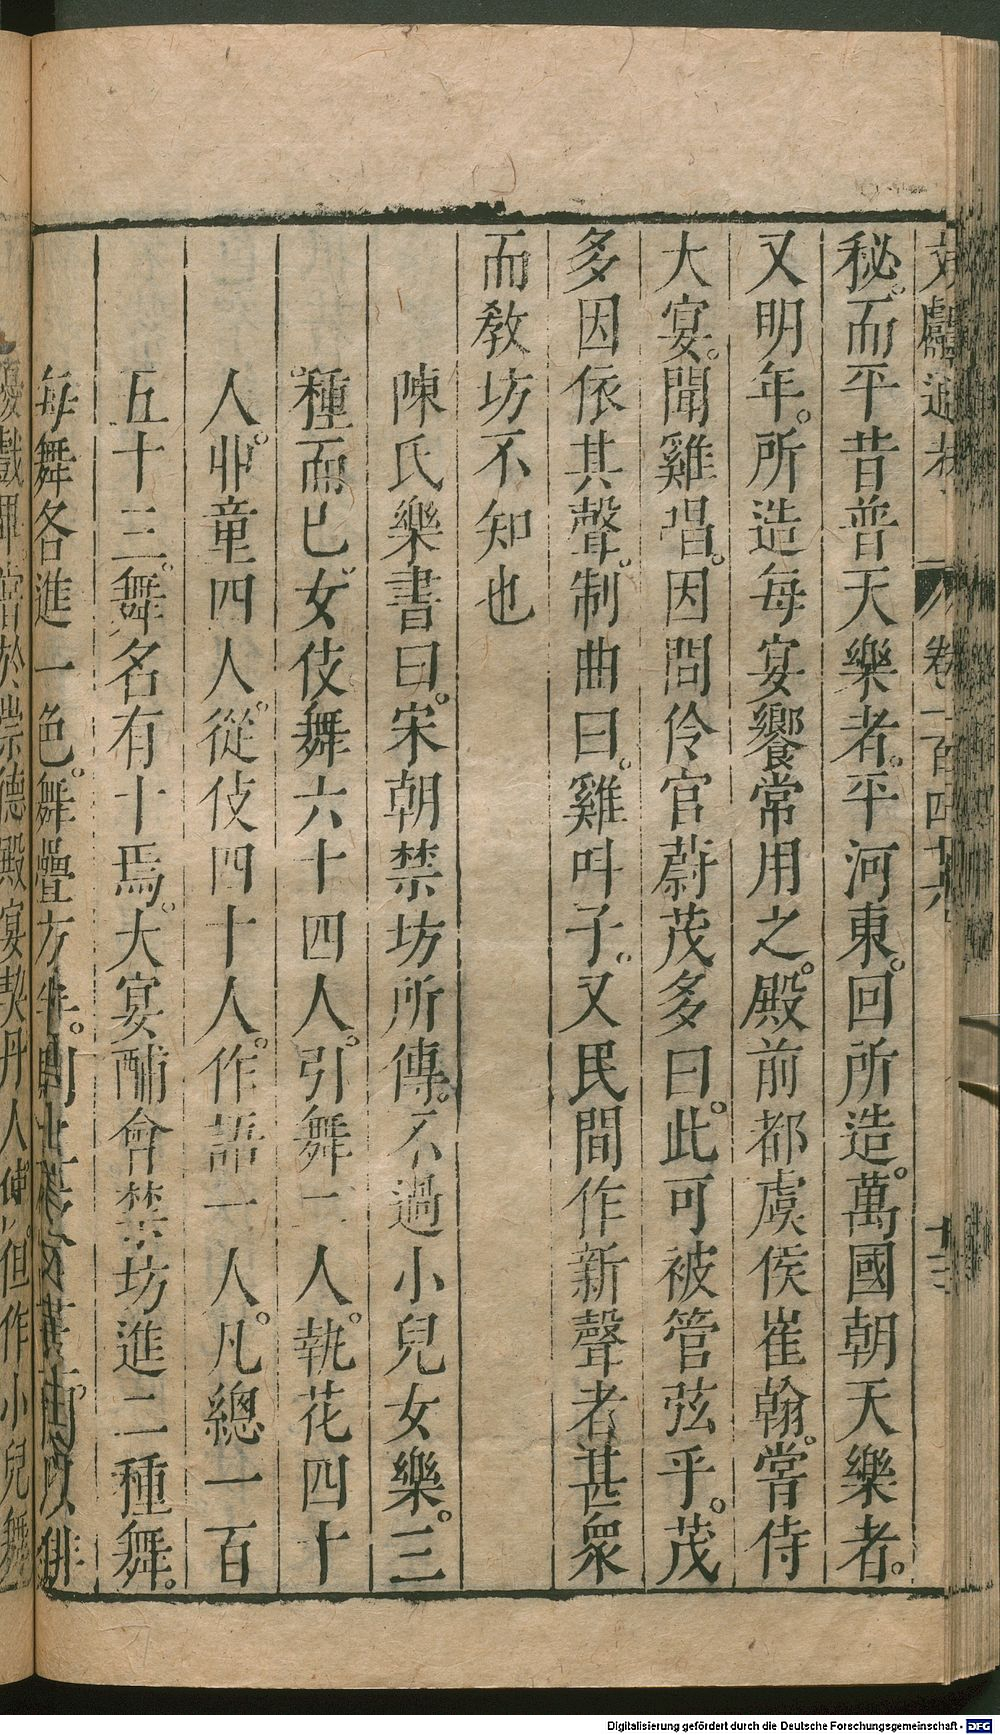 文獻通考 卷一百四十六 十三
秘。而平昔普天樂者。平河東。回所造。萬國朝天樂者。
又明年。所造每宴饗常用之。殿前都虞侯崔翰。嘗侍
大宴。聞雞唱。因問伶官蔚茂多曰。此可被管弦乎。茂
多因依其聲。制曲曰。雞叫子。又民間作新聲者甚衆
而教坊不知也
陳氏樂書曰。宋朝禁坊所傳。不過小兒女樂。三
種而已。女伎舞六十四人。引舞二人。執花四十
人。丱童四人。從伎四十人。作語一人。凡總一百
五十三。舞名有十焉。大宴酺會。禁坊進二種舞。
每舞各進一色。舞疊方半。
俳
優戲 嘗於崇德殿宴契丹人使。但作小兒舞
Digitalisierung gefördert durch die Deutsche Forschungsgemeinschaft - DFG